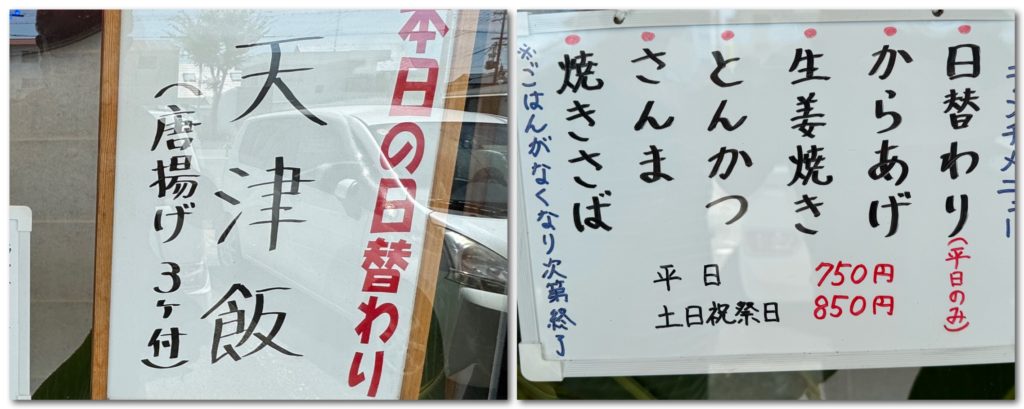 本日の日替わり
天津飯
（唐揚げ3ヶ付）
ランチメニュー
日替わり（平日のみ）
からあげ
生姜焼き
とんかつ
さんま
焼きさば
平日 750円
土日祝祭日 850円
※ごはんがなくなり次第終了